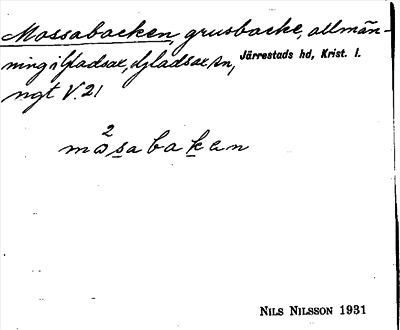 Mossabacken, grusbacke, allmän-
ning i Gladsax, Gladsax sn, Järrestads hd, Krist. l.
ngt V. 21
2
mosabaken
NILS NILSSON 1931